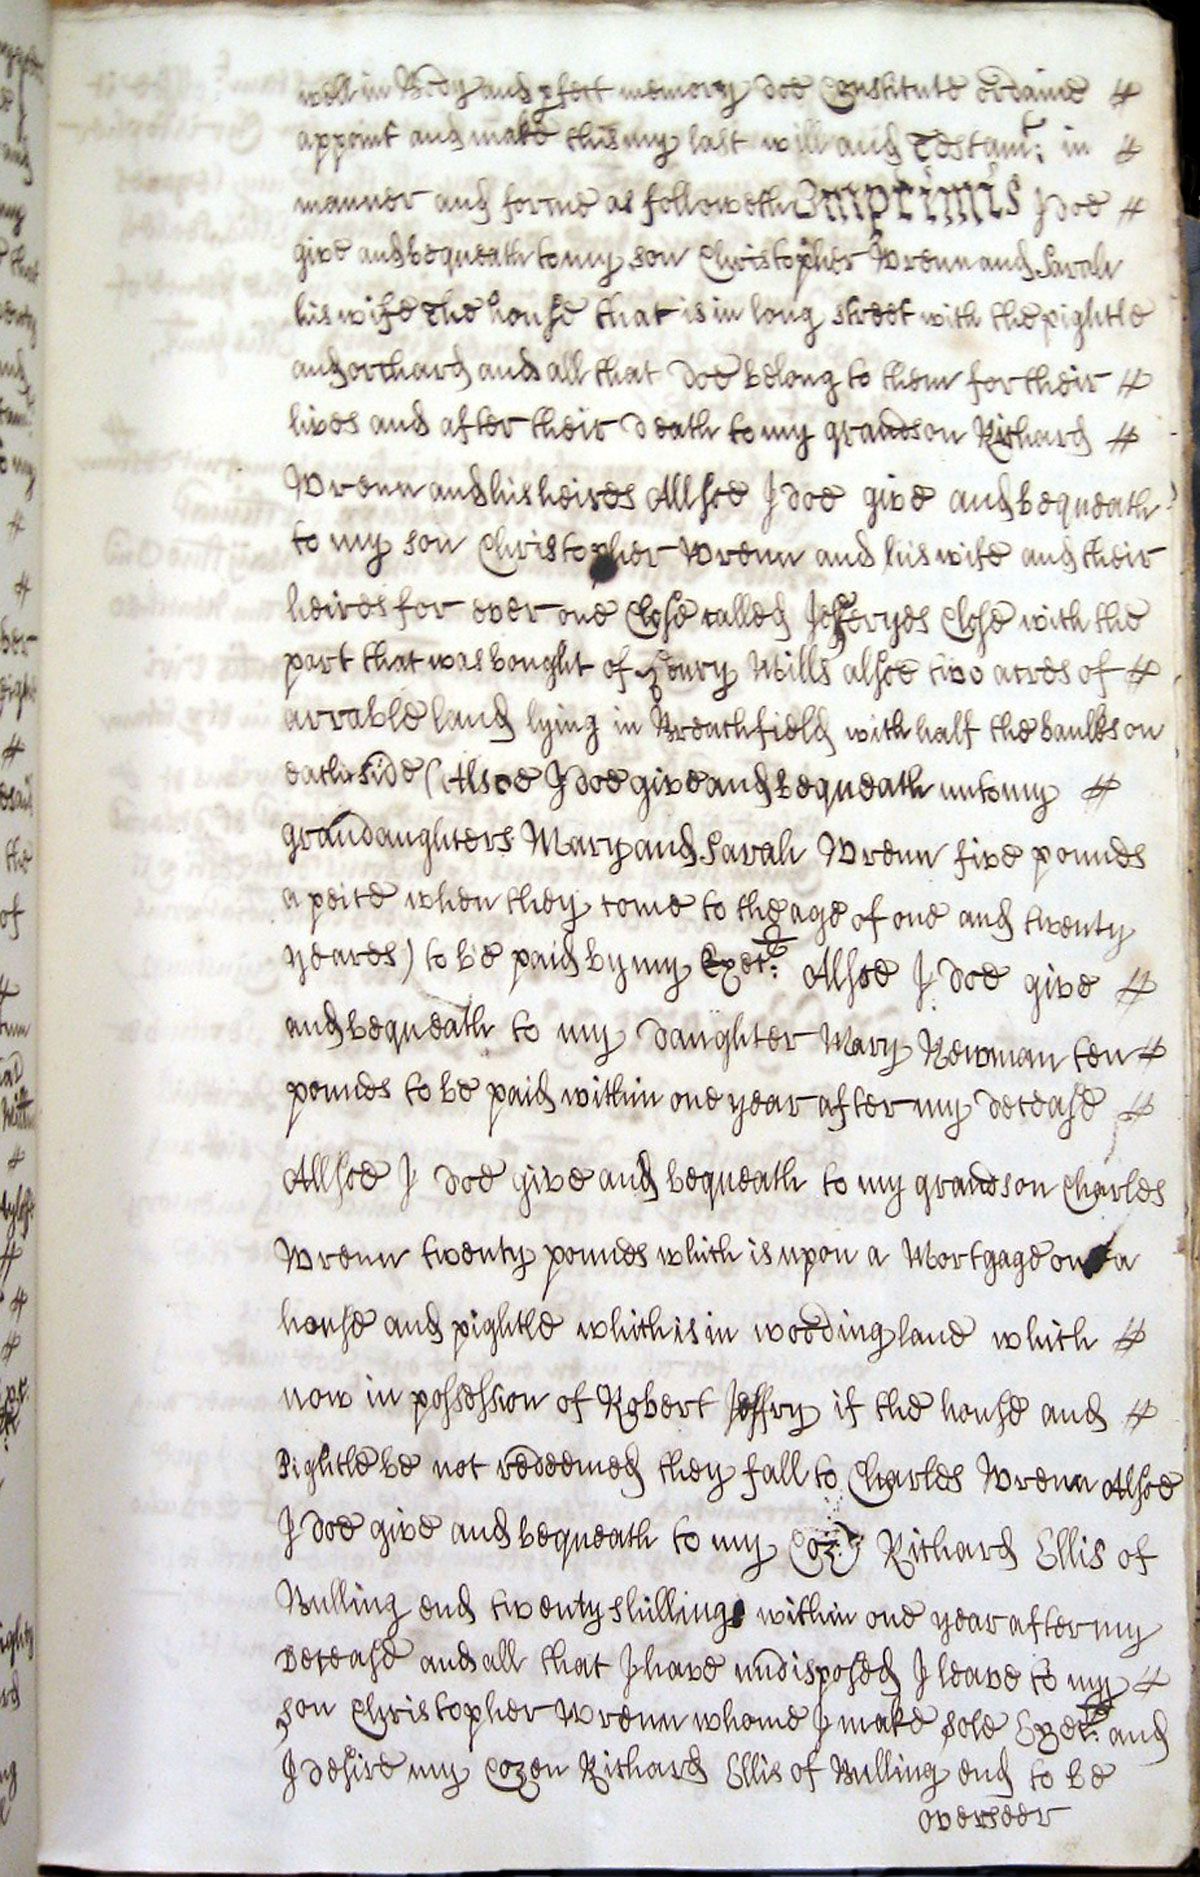 well in Body and pfect memory doe Constitute ordaine
appoint and make this my last will and Testamt: in
manner and forme as followeth Imprimis I doe
give and bequeath to my son Christopher Wrenn and Sarah
his wife The house that is in long street with the pightle
and orchard and all that doe belong to them for their
lives and after their death to my grandson Richard
Wrenn and his heires Allsoe I doe give and bequeath
to my son Christopher Wrenn and his wife and their
heires for ever one Close called Jefferyes Close with the
part that was bought of Henry Mills alsoe two acres of
arrable land lying in Breathfield with half the baulks on
each side (Alsoe I doe give and bequeath unto my
grandaughters Mary and Sarah Wrenn five pounds
a peice when they come to the age of one and twenty
yeares) to be paid by my Exer: Allsoe I doe give
and bequeath to my daughter Mary Newman ten
pounds to be paid within one year after my decease
Allsoe I doe give and bequeath to my grandson Charles
Wrenn twenty pounds which is upon a Mortgage on a
house and pightle which is in woodingland which
now in possession of Robert Jeffry if the house and
Pightle be not redeemed they fall to Charles Wrenn Alsoe
I doe give and bequeath to my Coz: Richard Ellis of
Bulling end twenty shillings within one year after my
decease and all that I have undisposed I leave to my
son Christopher Wrenn whome I make sole Exer: and
I desire my Cozen Richard Ellis of Bulling end to be
overseer